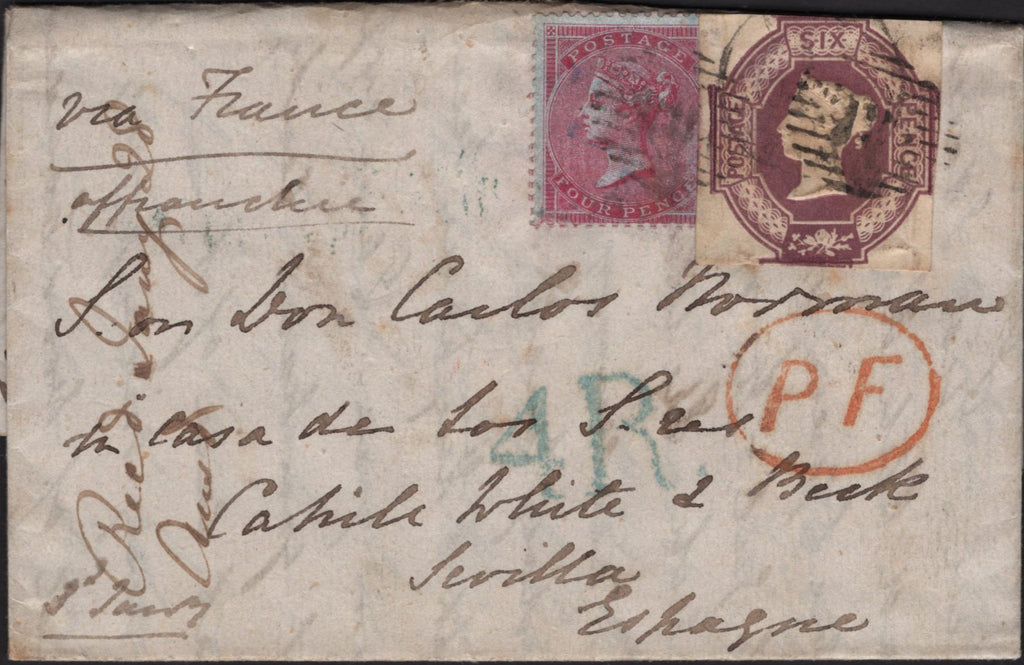 via France
affranchie
POSTAGE
FOUR PENCE
SIX
POSTAGE
PENCE
S.or Don Carlos Norman
P F
en casa de Los S.res
4R.
Cahill White & Beck
Sevilla
Espagne
Rec.